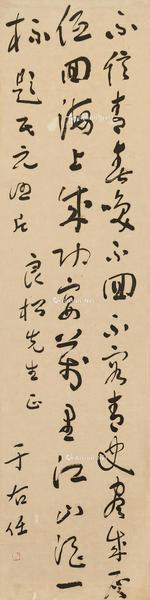 不信青春喚不回不容青史盡成灰
低回海上成功宴萬里江山酒一
杯 題民元照片
良松先生正
于右任